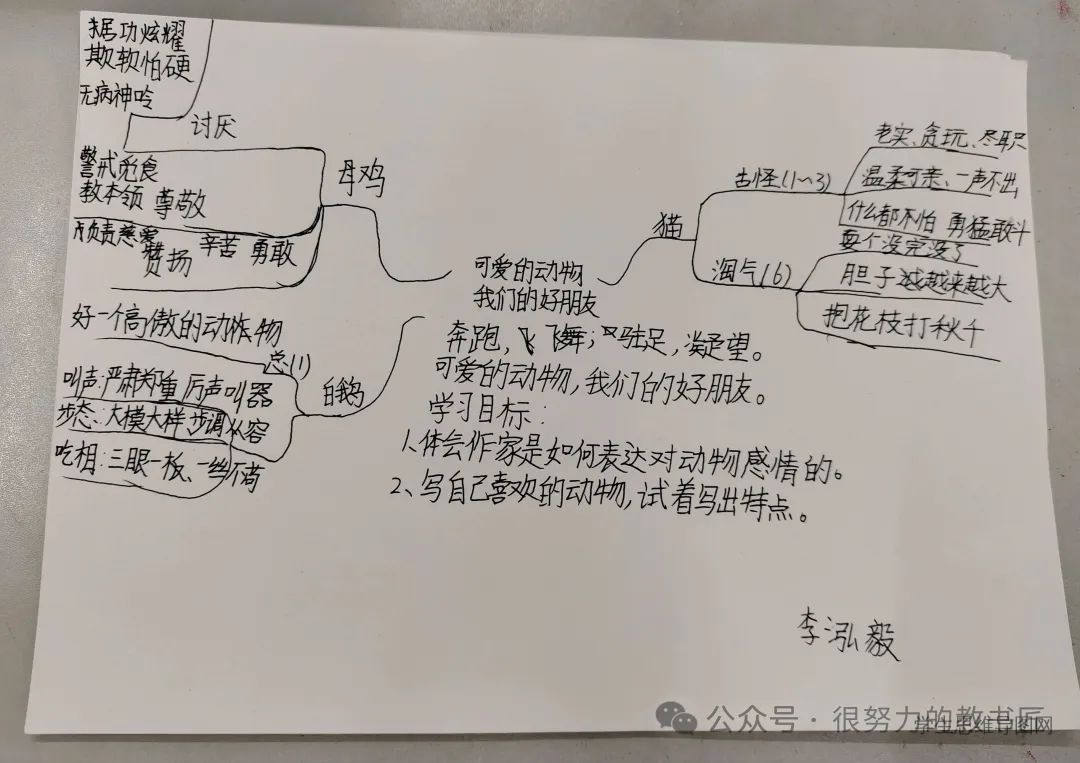 居功炫耀
欺软怕硬
无病神呤
讨厌
警戒觅食
教本领 尊敬
负责慈爱
赞扬 辛苦 勇敢
母鸡
好一个高傲的动作物
总(1)
叫声:严肃郑重 厉声叫嚣
步态:大模大样 步调从容
吃相:三眼一板、一丝不苟
白鹅
可爱的动物
我们的好朋友
猫
古怪(1~3)
老实、贪玩、尽职
温柔可亲、一声不出
什么都不怕 勇猛敢斗
淘气(6)
耍个没完没了
胆子越来越大
抱花枝打秋千
奔跑,飞舞;驻足,凝望。
可爱的动物,我们的好朋友。
学习目标:
1、体会作家是如何表达对动物感情的。
2、写自己喜欢的动物,试着写出特点。
李泓毅
公众号·很努力的教书匠
学生思维导图网